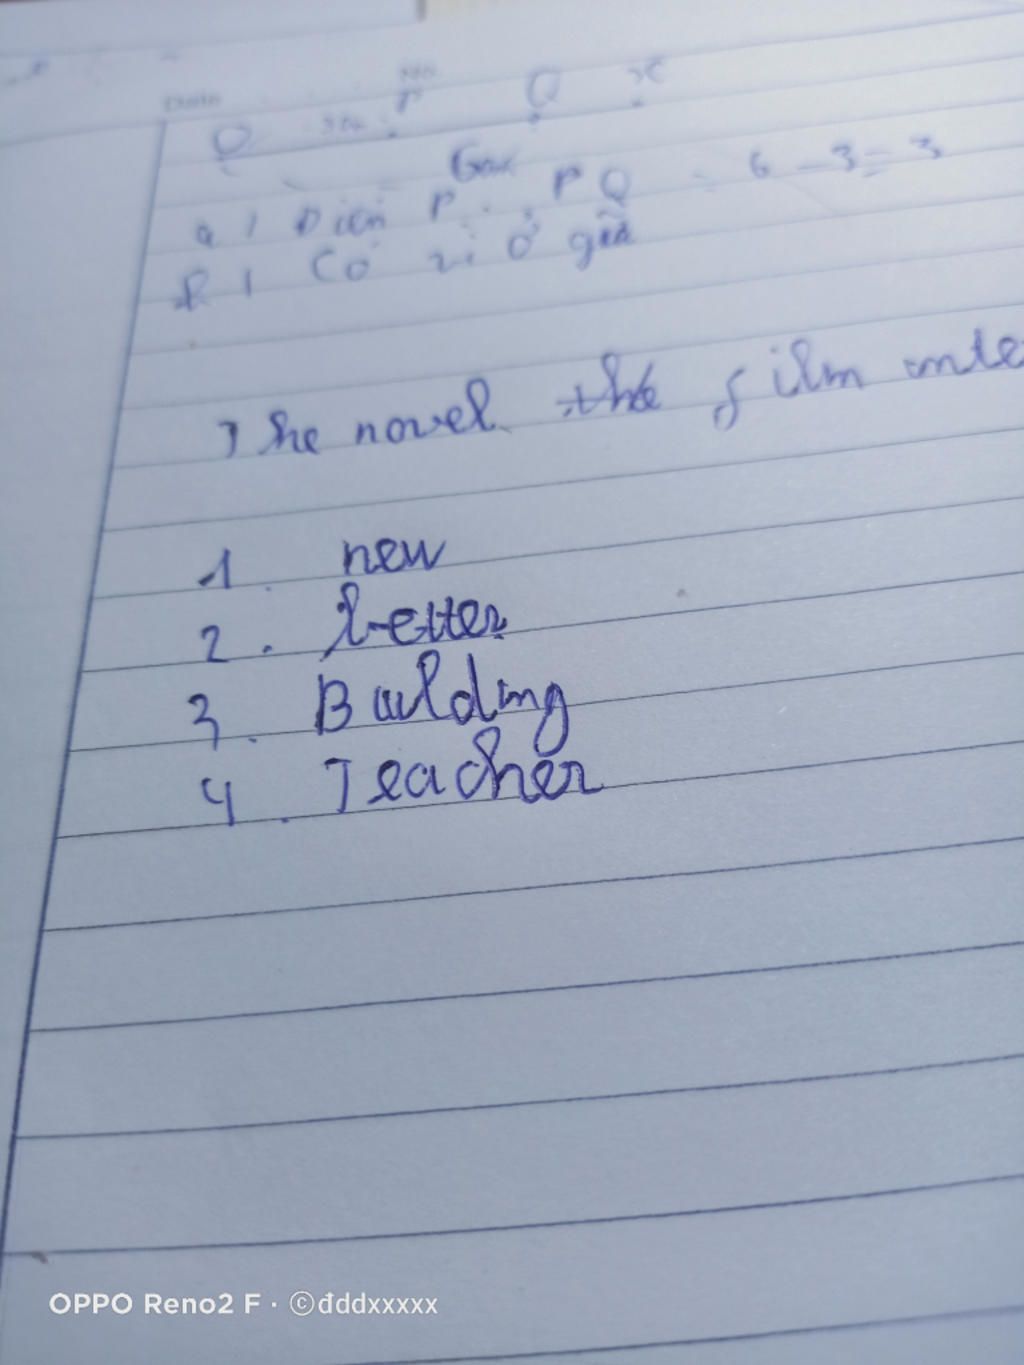 P Q x
a / Điểm P . PQ = 6 - 3 = 3
b / Có vì ở giữa
The novel the film inte
1. new
2. Letter
3. Building
4. Teacher
OPPO Reno2 F · ©đddxxxxx